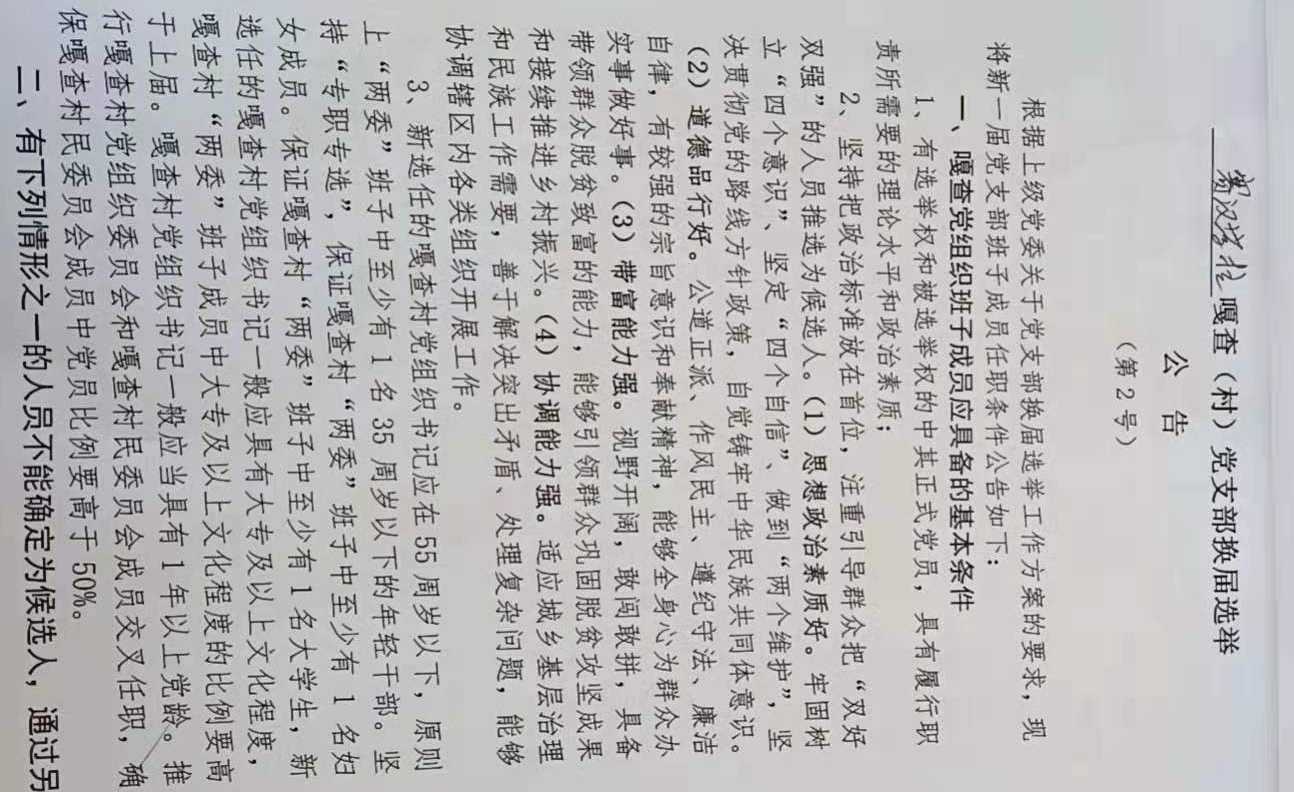 赛汉学拉嘎查（村）党支部换届选举
公 告
（第 2 号）
根据上级党委关于党支部换届选举工作方案的要求，现
将新一届党支部班子成员任职条件公告如下：
一、嘎查党组织班子成员应具备的基本条件
1、有选举权和被选举权的中共正式党员，具有履行职
责所需要的理论水平和政治素质；
2、坚持把政治标准放在首位，注重引导群众把“双好
双强”的人员推选为候选人。（1）思想政治素质好。牢固树
立“四个意识”、坚定“四个自信”、做到“两个维护”，坚
决贯彻党的路线方针政策，自觉铸牢中华民族共同体意识。
（2）道德品行好。公道正派、作风民主、遵纪守法、廉洁
自律，有较强的宗旨意识和奉献精神，能够全身心为群众办
实事做好事。（3）带富能力强。视野开阔，敢闯敢拼，具备
带领群众脱贫致富的能力，能够引领群众巩固脱贫攻坚成果
和接续推进乡村振兴。（4）协调能力强。适应城乡基层治理
和民族工作需要，善于解决突出矛盾、处理复杂问题，能够
协调辖区内各类组织开展工作。
3、新选任的嘎查村党组织书记应在 55 周岁以下，原则
上“两委”班子中至少有 1 名 35 周岁以下的年轻干部。坚
持“专职专选”，保证嘎查村“两委”班子中至少有 1 名妇
女成员。保证嘎查村“两委”班子中至少有 1 名大学生，新
选任的嘎查村党组织书记一般应具有大专及以上文化程度，
嘎查村“两委”班子成员中大专及以上文化程度的比例要高
于上届。嘎查村党组织书记一般应当具有 1 年以上党龄。推
行嘎查村党组织委员会和嘎查村民委员会成员交叉任职，确
保嘎查村民委员会成员中党员比例要高于 50%。
二、有下列情形之一的人员不能确定为候选人，通过另